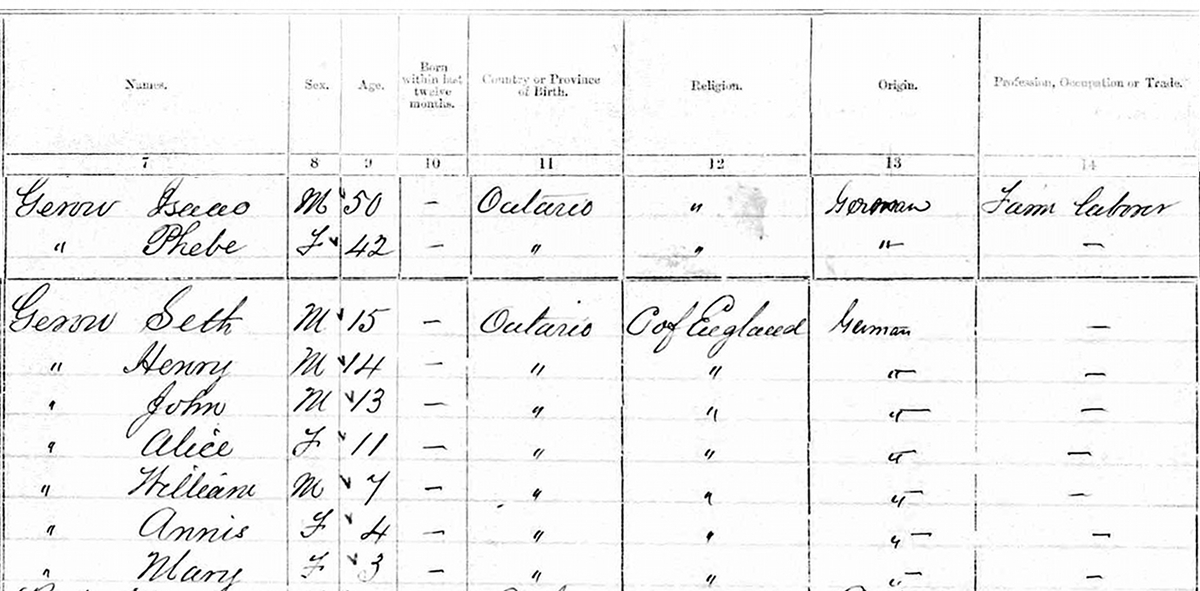 Names. Sex. Age. Born within last twelve months. Country or Province of Birth. Religion. Origin. Profession, Occupation or Trade.
7 8 9 10 11 12 13 14
Gerow Isaac M 50 – Ontario " German Farm laborer
" Phebe F 42 – " " " –
Gerow Seth M 15 – Ontario C of England German –
" Henry M 14 – " " " –
" John M 13 – " " " –
" Alice F 11 – " " " –
" William M 7 – " " " –
" Annis F 4 – " " " –
" Mary F 3 – " " " –